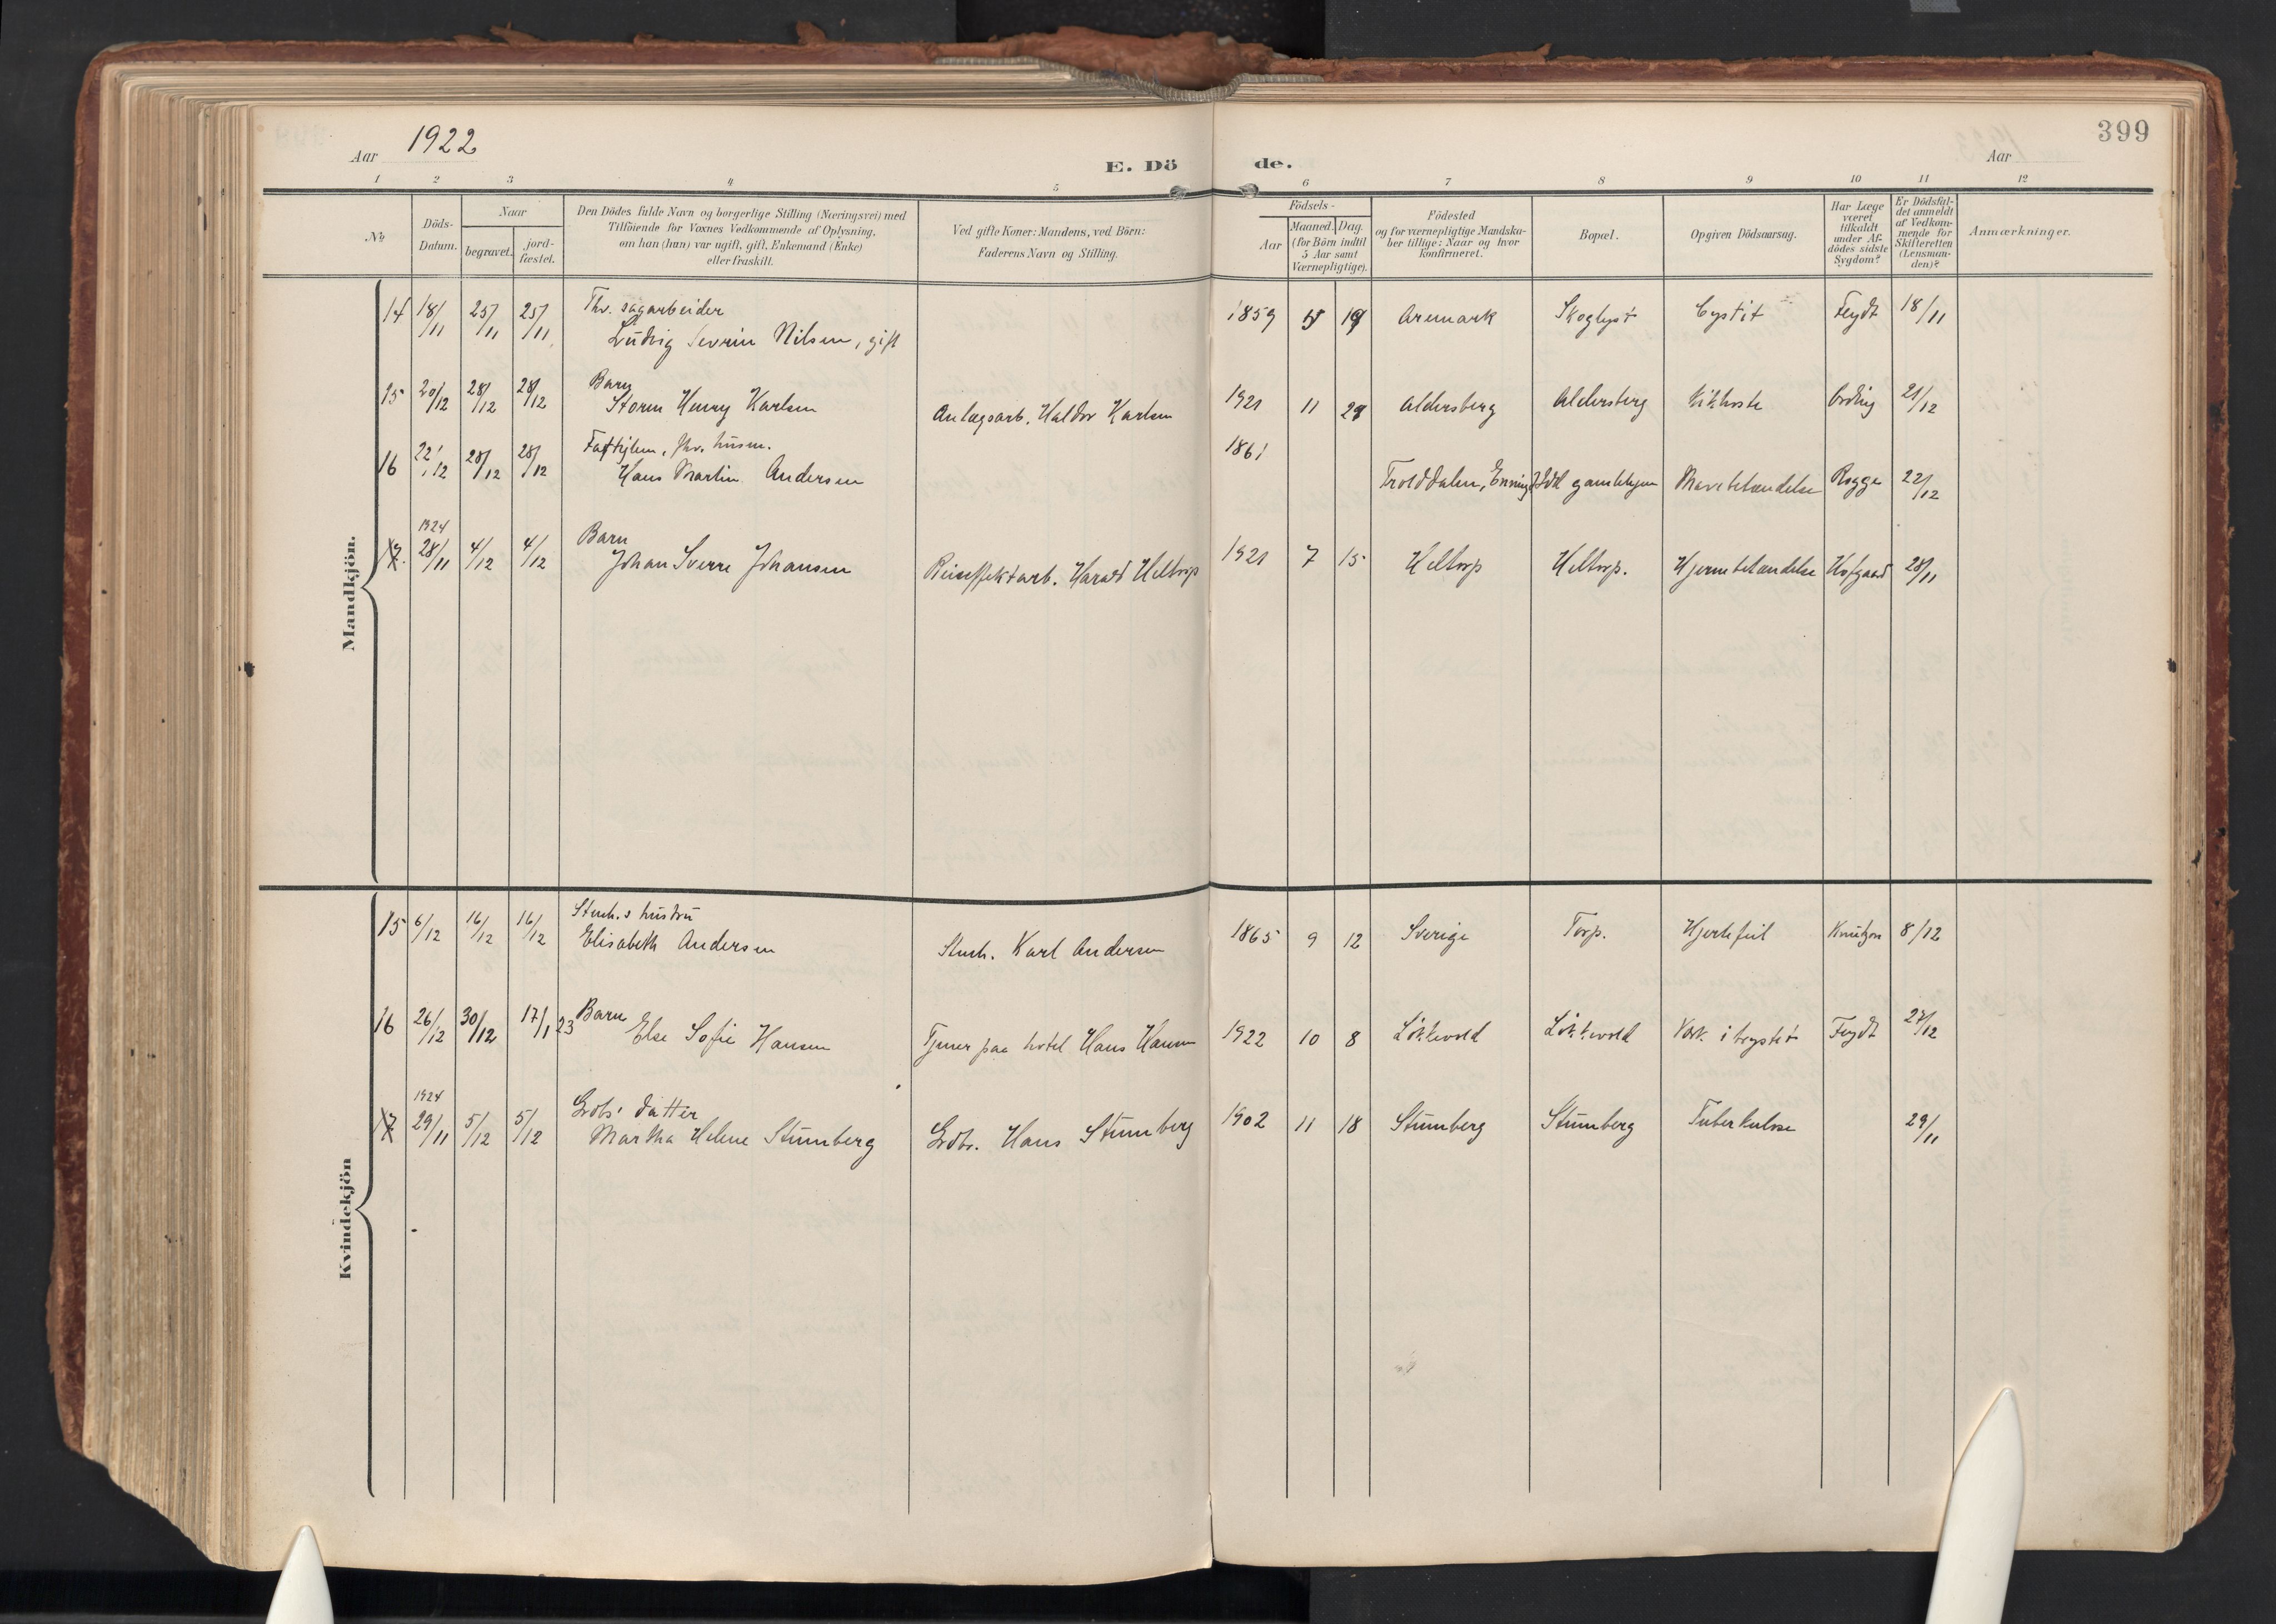 399
Aar 1922
E. Döde.
Aar
1 2 3 4 5 6 7 8 9 10 11 12
№
Döds-Datum.
Naar
begravet.
jord-fæstet.
Den Dödes fulde Navn og borgerlige Stilling (Næringsvei) med
Tilföiende for Voxnes Vedkommende af Oplysning,
om han (hun) var ugift, gift, Enkemand (Enke)
eller fraskilt.
Ved gifte Koner: Mandens, ved Börn:
Faderens Navn og Stilling.
Födsels-
Aar
Maaned. Dag.
(for Börn indtil
5 Aar samt
Værnepligtige).
Födested
og for værnepligtige Mandska-
ber tillige: Naar og hvor
konfirmeret.
Bopæl.
Opgiven Dödsaarsag.
Har Læge
været
tilkaldt
under Af-
dödes sidste
Sygdom?
Er Dödsfal-
det anmeldt
af Vedkom-
mende for
Skifteretten
(Lensman-
den)?
Anmærkninger.
Mandkjön.
14 18/11 25/11 25/11 Fhv. sagarbeider
Ludvig Severin Nilsen, gift
1859 19 Aremark Skoglyst Cystit Feydt 18/11
15 20/12 28/12 28/12 Barn
Storm Henry Karlsen Anlægsarb. Haldor Karlsen 1921 11 29 Aldersberg Aldersberg Kikhoste Ording 21/12
16 22/12 28/12 28/12 Fattiglem, fhv. husm.
Hans Martin Andersen 1861 Trolddalen, Enning Idd gamlehjem Mavebetændelse Rogge 22/12
17. 1924 28/11 4/12 4/12 Barn
Johan Sverre Johansen Harald Heltorp 1921 7 15 Heltorp Heltorp. Hjernebetændelse Hofgaard 28/11
Kvindekjön
15 6/12 16/12 16/12 Stenh.s hustru
Elisabeth Andersen Stenh. Karl Andersen 1865 9 12 Sverige Torp. Hjertefeil Knutzon 8/12
16 26/12 30/12 17/1 23 Barn
Else Sofie Hansen Tjener paa hotel Hans Hansen 1922 10 8 Løkkevold Løkkevold Vok. i brystet Feydt 27/12
17 1924 29/11 5/12 5/12 Grdbs' datter
Martha Helene Stumberg Grdbr. Hans Stumberg 1902 11 18 Stumberg Stumberg Tuberkulose 29/11